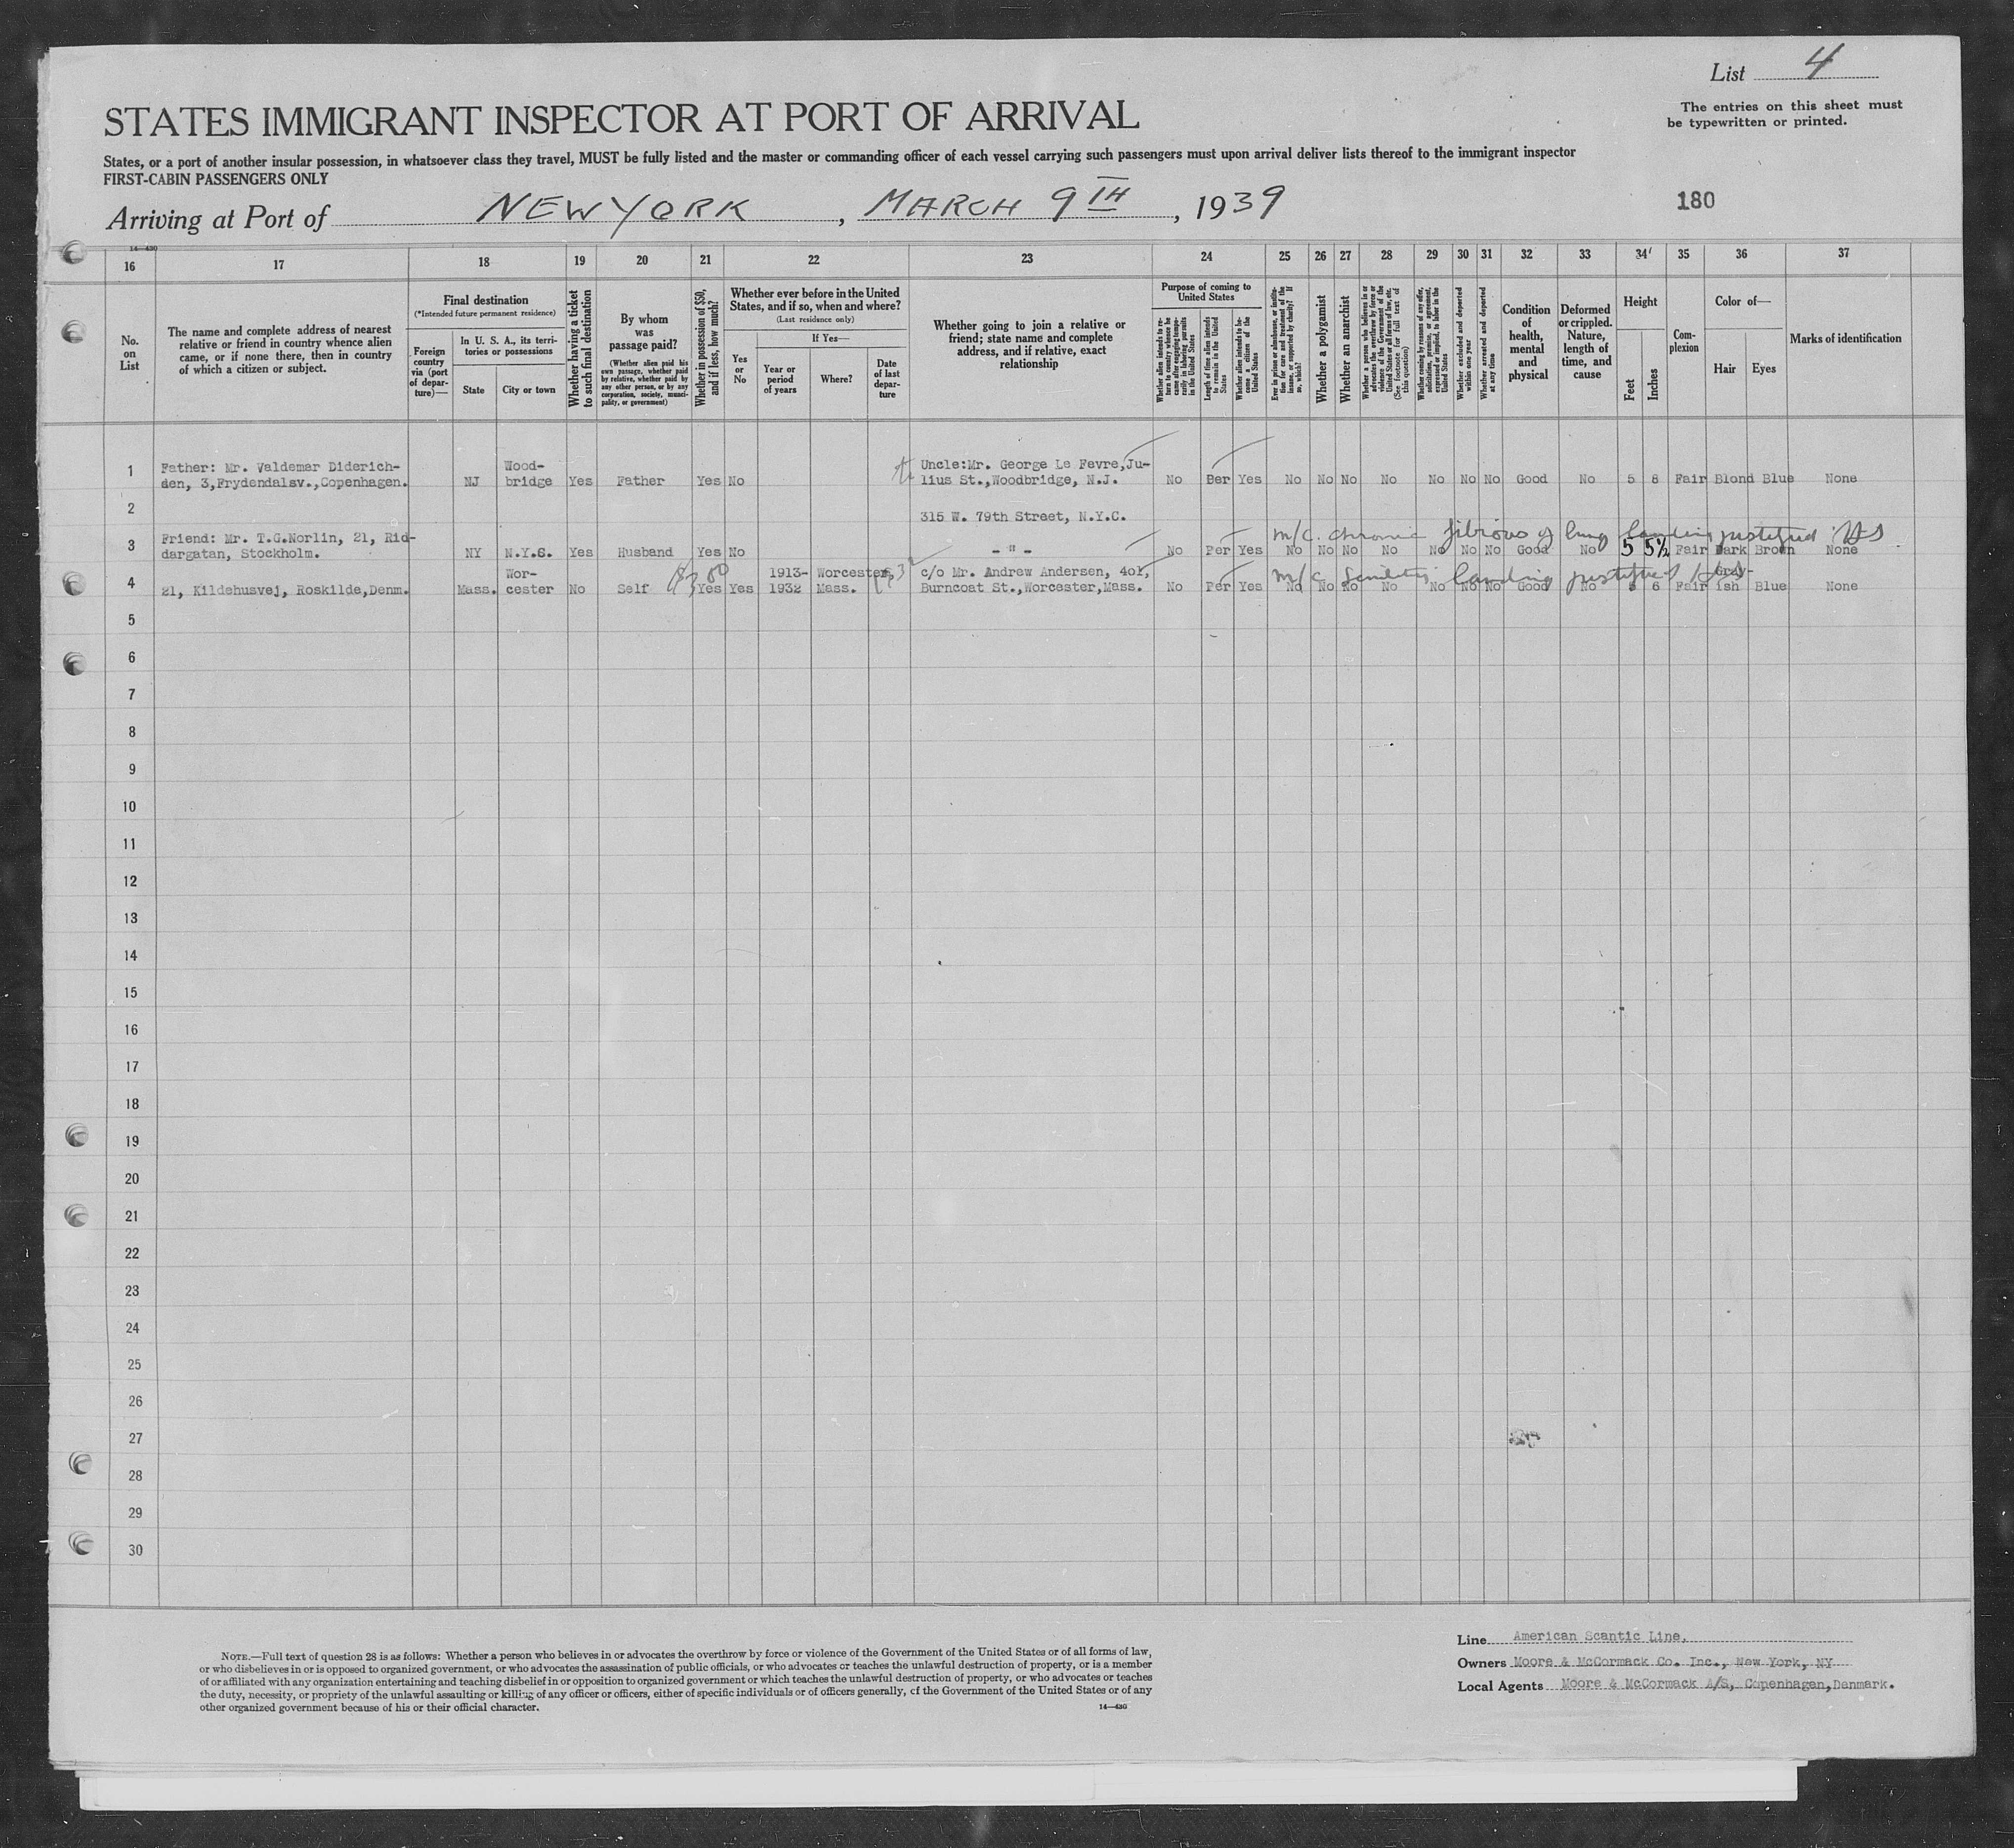 List 4
The entries on this sheet must
be typewritten or printed.
STATES IMMIGRANT INSPECTOR AT PORT OF ARRIVAL
States, or a port of another insular possession, in whatsoever class they travel, MUST be fully listed and the master or commanding officer of each vessel carrying such passengers must upon arrival deliver lists thereof to the immigrant inspector
FIRST-CABIN PASSENGERS ONLY
Arriving at Port of NEW YORK, MARCH 9TH, 1939
180
14—430
16 17 18 19 20 21 22 23 24 25 26 27 28 29 30 31 32 33 34 35 36 37
No.
on
List
The name and complete address of nearest
relative or friend in country whence alien
came, or if none there, then in country
of which a citizen or subject.
Final destination
(*Intended future permanent residence)
Foreign
country
via (port
of depar-
ture)—
In U. S. A., its terri-
tories or possessions
State
City or town
Whether having a ticket
to such final destination
By whom
was
passage paid?
(Whether alien paid his
own passage, whether paid
by relative, whether paid by
any other person, or by any
corporation, society, munici-
pality, or government)
Whether in possession of $50,
and if less, how much?
Whether ever before in the United
States, and if so, when and where?
(Last residence only)
Yes
or
No
If Yes—
Year or
period
of years
Where?
Date
of last
depar-
ture
Whether going to join a relative or
friend; state name and complete
address, and if relative, exact
relationship
Purpose of coming to
United States
Whether alien intends to re-
turn to country whence he
came after engaging tempo-
rarily in laboring pursuits
in the United States
Length of time alien intends
to remain in the United
States
Whether alien intends to be-
come a citizen of the
United States
Ever in prison or almshouse, or institu-
tion for care and treatment of the
insane, or supported by charity? If
so, which?
Whether a polygamist
Whether an anarchist
Whether a person who believes in or
advocates the overthrow by force or
violence of the Government of the
United States or all forms of law, etc.
(See footnote for full text of
this question)
Whether coming by reasons of any offer,
solicitation, promise, or agreement,
expressed or implied, to labor in the
United States
Whether excluded and deported
within one year
Whether arrested and deported
at any time
Condition
of
health,
mental
and
physical
Deformed
or crippled.
Nature,
length of
time, and
cause
Height
Feet
Inches
Com-
plexion
Color of—
Hair
Eyes
Marks of identification
1 Father: Mr. Valdemar Diderich-
den, 3,Frydendalsv.,Copenhagen. NJ Wood-
bridge Yes Father Yes No Uncle:Mr. George Le Fevre,Ju-
lius St.,Woodbridge, N.J. No Per Yes No No No No No No No Good No 5 8 Fair Blond Blue None
2
315 W. 79th Street, N.Y.C.
m/c. chronic fibrosis of lung landing justified
3 Friend: Mr. T.G.Norlin, 21, Rid-
dargatan, Stockholm. NY N.Y.C. Yes Husband Yes No - " - No Per Yes No No No No No No No Good No 5 5½ Fair Dark Brown None
$300
m/c Senility landing justified
4 21, Kildehusvej, Roskilde,Denm. Mass. Wor-
cester No Self Yes Yes 1913-
1932 Worcester,
Mass. c/o Mr. Andrew Andersen, 401,
Burncoat St.,Worcester,Mass. No Per Yes No No No No No No No Good No 5 6 Fair Gray-
ish Blue None
5
6
7
8
9
10
11
12
13
14
15
16
17
18
19
20
21
22
23
24
25
26
27
28
29
30
NOTE.—Full text of question 28 is as follows: Whether a person who believes in or advocates the overthrow by force or violence of the Government of the United States or of all forms of law,
or who disbelieves in or is opposed to organized government, or who advocates the assassination of public officials, or who advocates or teaches the unlawful destruction of property, or is a member
of or affiliated with any organization entertaining and teaching disbelief in or opposition to organized government or which teaches the unlawful destruction of property, or who advocates or teaches
the duty, necessity, or propriety of the unlawful assaulting or killing of any officer or officers, either of specific individuals or of officers generally, of the Government of the United States or of any
other organized government because of his or their official character.
14—430
Line American Scantic Line.
Owners Moore & McCormack Co. Inc., New York, NY
Local Agents Moore & McCormack A/S, Copenhagen, Denmark.